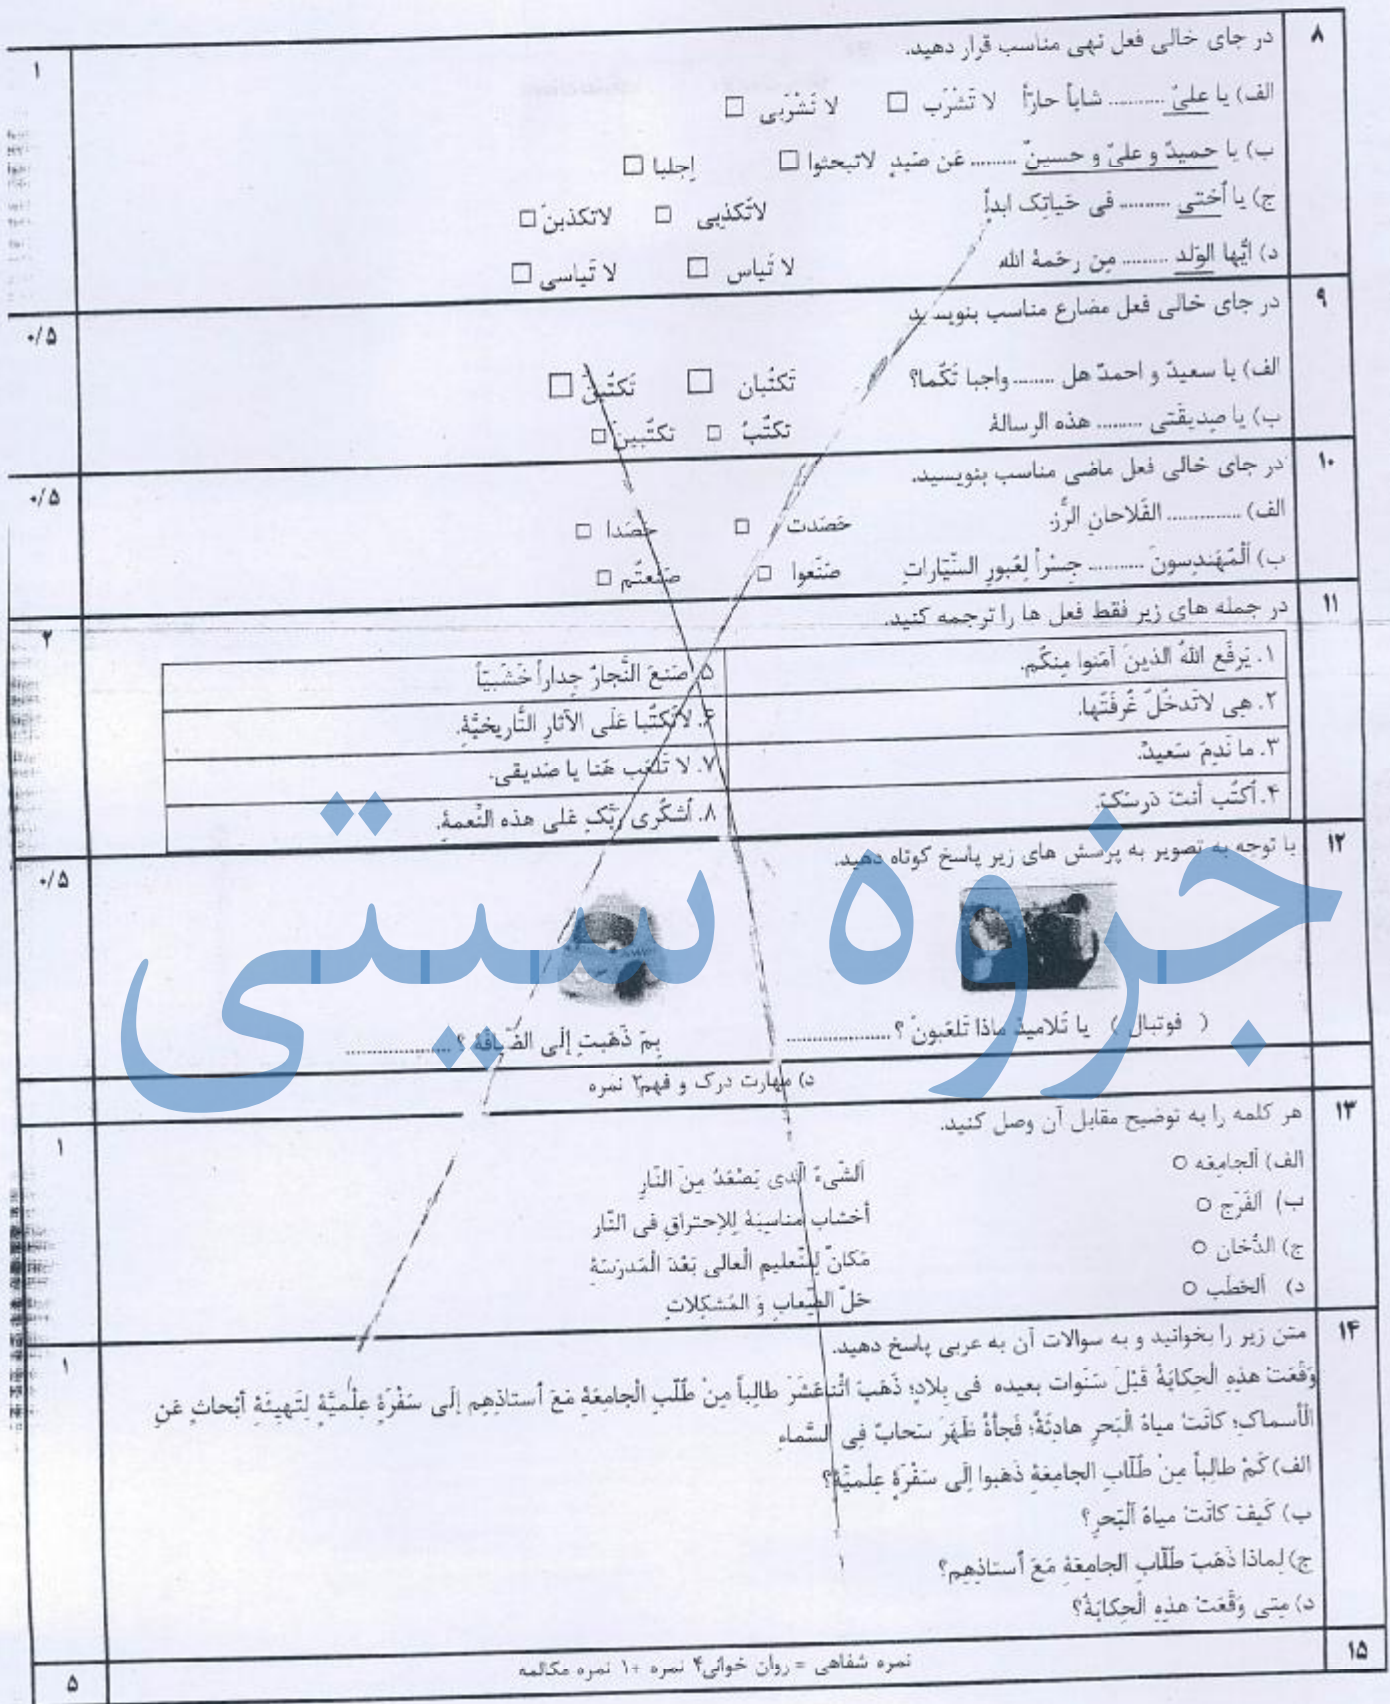 ۸ در جای خالی فعل نهی مناسب قرار دهید. ۱
الف) یا علیّ ........... شایاً حارّاً لا تَشْرَب □ لا تَشْرَبی □
ب) یا حمیدّ و علیّ و حسینّ ......... عَن صَیدٍ لاتبحثوا □ اِجلبا □
ج) یا اُختی .......... فی حَیاتِک ابداً لاتَکذِبی □ لاتکذبنَ □
د) اَیُّها الوَلد ......... مِن رحمةِ الله لا تَیاس □ لا تَیاسی □
۹ در جای خالی فعل مضارع مناسب بنویسید ۰/۵
الف) یا سعیدّ و احمدّ هل ........ واجبا تَکُما؟ تَکتُبان □ تَکتُبنَ □
ب) یا صدیقَتی ......... هذه الرسالة تکتُبُ □ تکتُبینَ □
۱۰ در جای خالی فعل ماضی مناسب بنویسید. ۰/۵
الف) .............. الفَلاحانِ الرُّز حَصَدت □ حَصَدا □
ب) اَلْمُهَندِسونَ .......... جِسْراً لِعُبورِ السَّیّاراتِ صَنَعوا □ صَنَعتُم □
۱۱ در جمله های زیر فقط فعل ها را ترجمه کنید. ۲
۱. یَرفَع اللهُ الذینَ آمَنوا مِنکُم. ۵. صَنعَ النَّجارُ جِداراً خَشَبیّاً
۲. هِی لاتَدخُلُ غُرفَتَها. ۶. لاتَکتُبا عَلَی الآثارِ التَّاریخیَّةِ.
۳. ما نَدِمَ سَعیدٌ. ۷. لا تَلعَب هُنا یا صَدیقی.
۴. اُکتُب أنتَ دَرسَکَ. ۸. اُشکُری رَبَّکِ عَلی هذه النِّعمةِ.
۱۲ با توجه به تصویر به پرسش های زیر پاسخ کوتاه دهید. ۰/۵
جزوه سیتی
( فوتبال ) یا تَلامیذُ ماذا تَلعَبونَ ؟ .................... بِمَ ذَهَبتِ إلَی الضّیافَة ؟ ....................
د) مهارت درک و فهم۲ نمره
۱۳ هر کلمه را به توضیح مقابل آن وصل کنید. ۱
الف) اَلجامِعَه ○ اَلشّیءُ الّذی یَصْعَدُ مِنَ النّارِ
ب) اَلفَرَج ○ أخشاب مناسِبَةٌ لِلاِحتراقِ فی النّار
ج) الدُّخان ○ مَکانٌ لِلتَّعلیمِ الْعالی بَعْدَ الْمَدرَسَةِ
د) الحَطَب ○ حَلّ الصِّعابِ وَ المُشکِلاتِ
۱۴ متن زیر را بخوانید و به سوالات آن به عربی پاسخ دهید. ۱
وَقَعَتْ هذِهِ الْحِکایَةُ قَبْلَ سَنَوات بعیده فی بِلادٍ؛ ذَهَبَ اثْناعَشَرَ طالِباً مِنْ طُلّابِ الْجامعَةِ مَعَ اُستاذِهِم إلَی سَفْرَةٍ عِلْمیَّةٍ لِتَهیئَةِ أبْحاثٍ عَنِ
الْأسماکِ؛ کانَتْ میاهُ الْبَحرِ هادِئَةً؛ فَجأةً ظَهَرَ سَحابٌ فِی السَّماءِ
الف) کَمْ طالِباً مِنْ طُلّابِ الجامِعَةِ ذَهَبوا إلَی سَفْرَةٍ عِلْمیَّةٍ؟
ب) کَیفَ کانَتْ میاهُ اَلْبَحرِ؟
ج) لِماذا ذَهَبَ طُلّابِ الجامِعَةِ مَعَ اُستاذِهِم؟
د) مِتی وَقَعَتْ هذِهِ الْحِکایَةُ؟
۱۵ نمره شفاهی = روان خوانی۴ نمره +۱ نمره مکالمه ۵